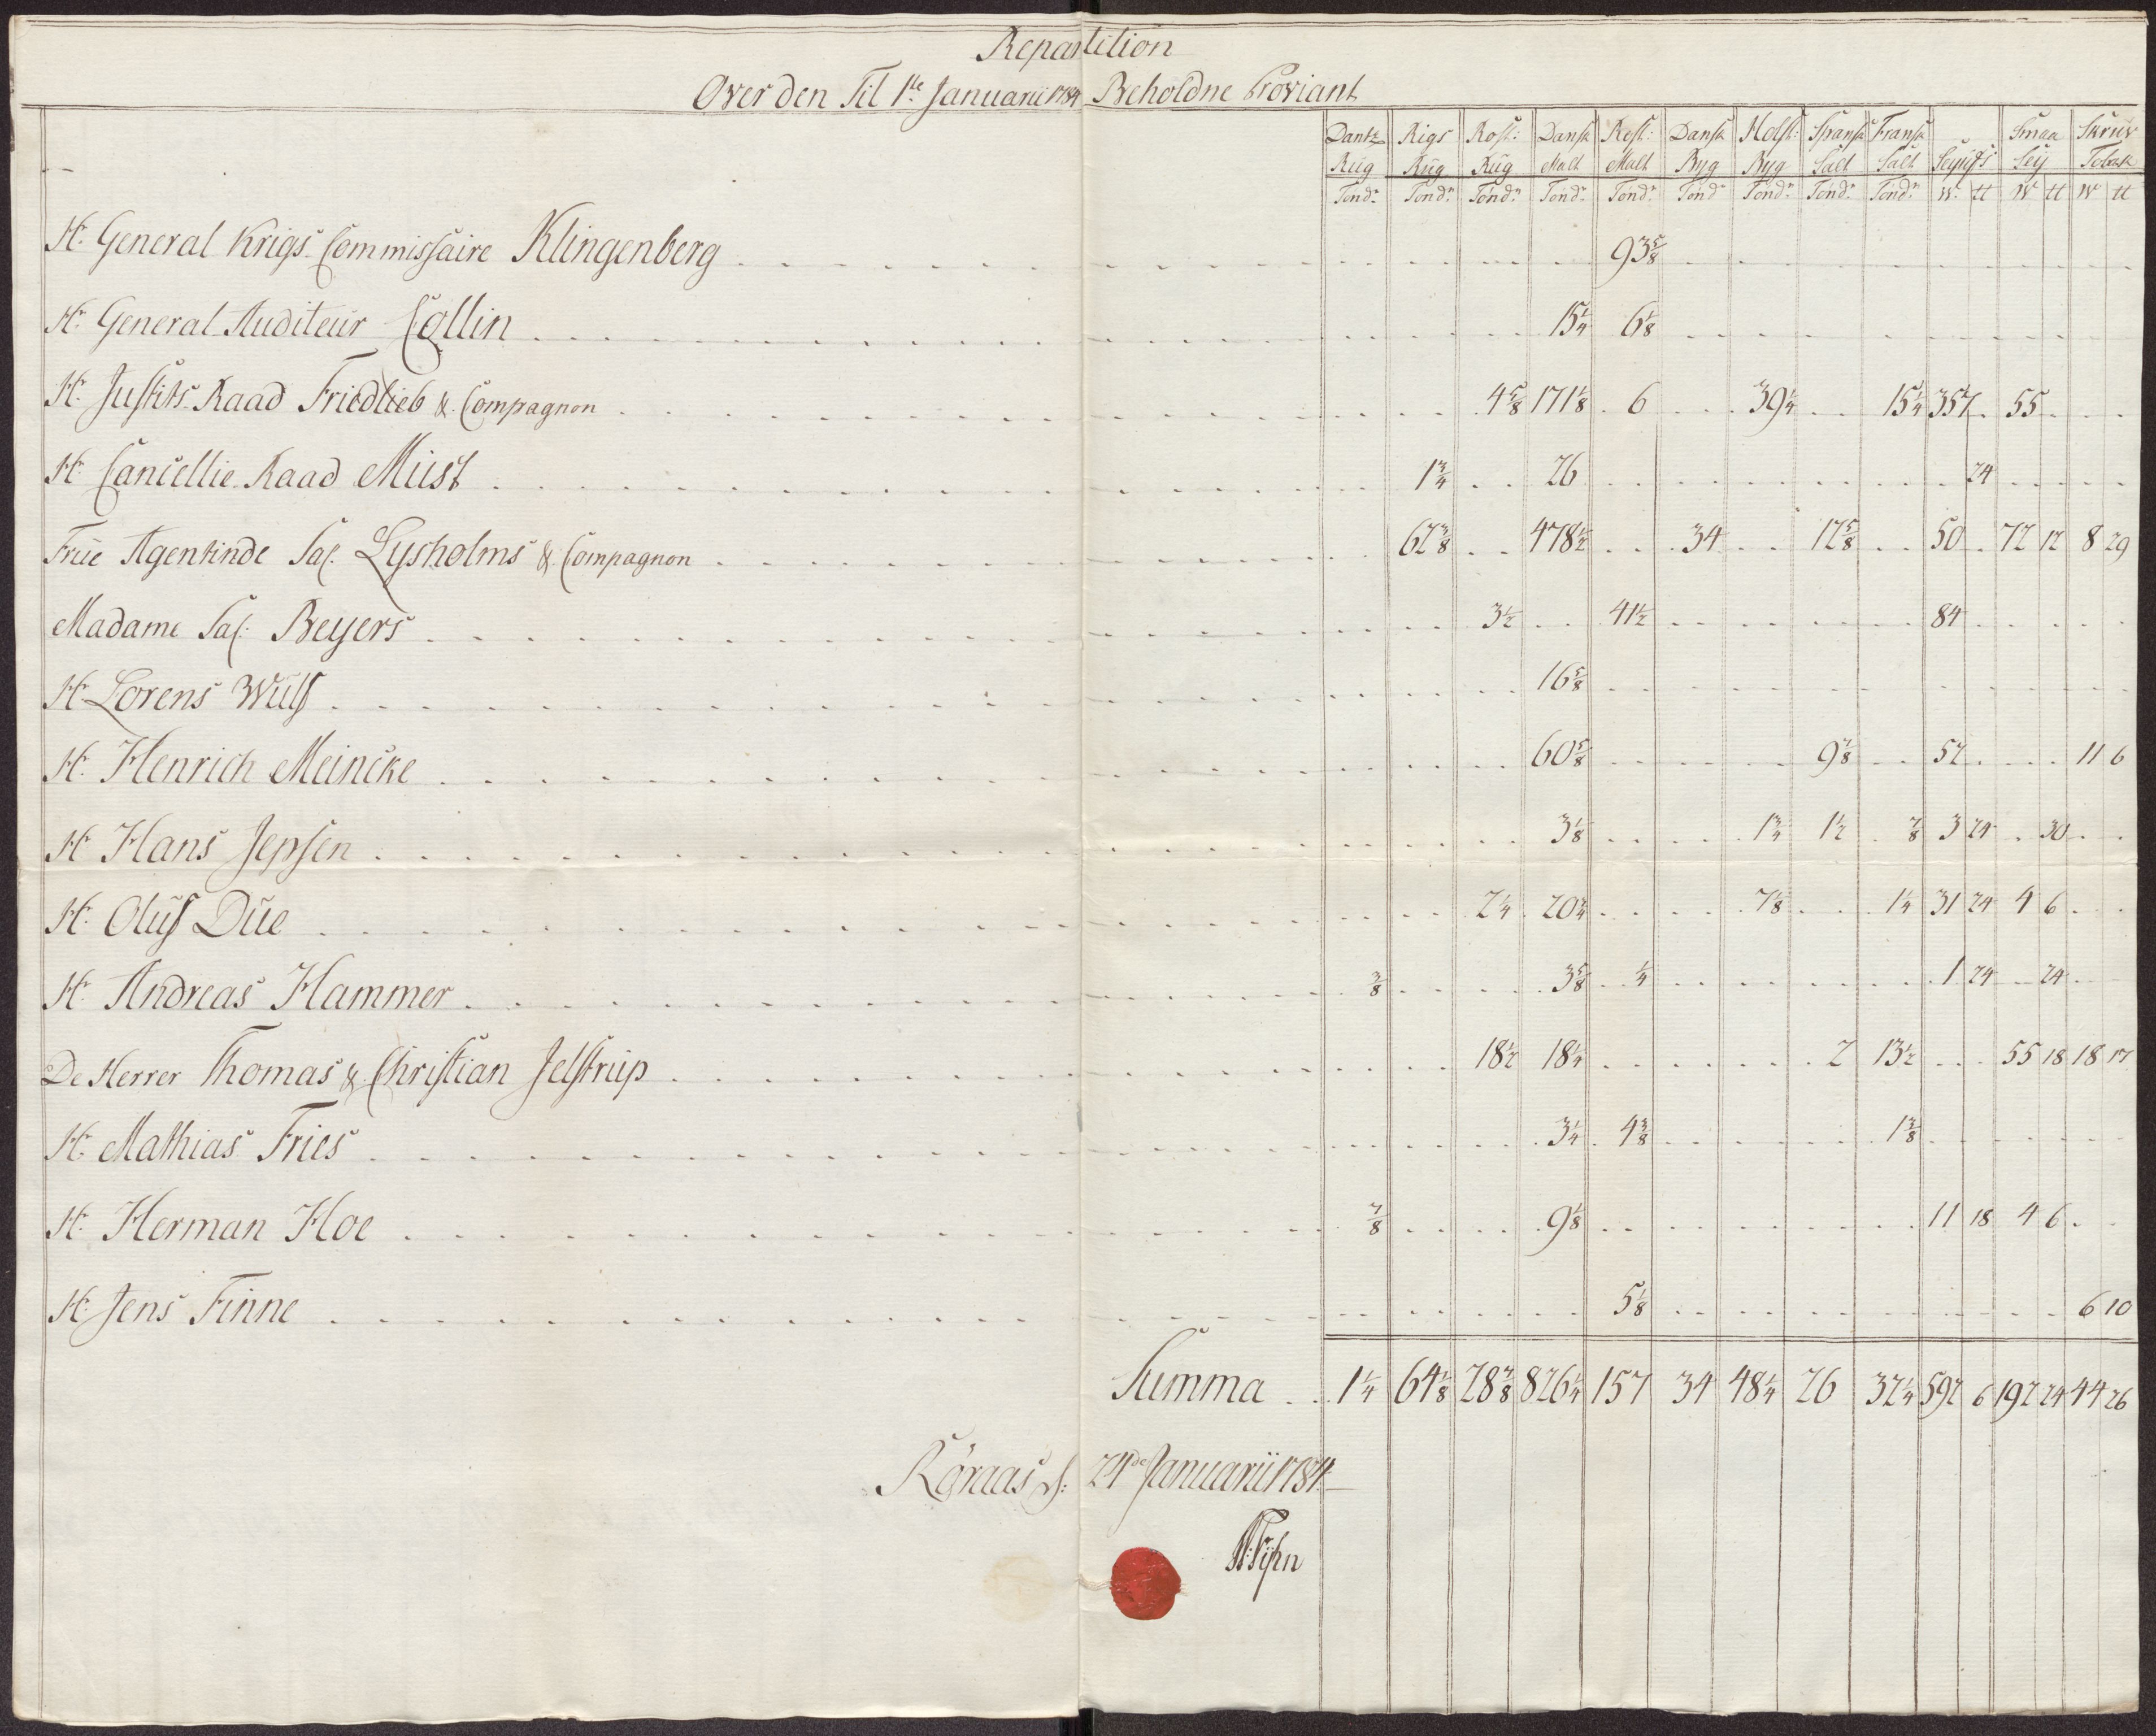 Repartition
Over den Til 1ste Januarii 1784 Beholdne Proviant
Dantz Rigs Rost: Dansk Rost: Dansk Holst: Spansk Fransk Smaa Skruv
Rüg Rüg Rüg Malt Malt Byg Byg Salt Salt Seyufs: Sey Tobak
Tönd.r Tönd.r Tönd.r Tönd.r Tönd.r Tönd Tönd.r Tönd.r Tönd.r W. ℔ W ℔ W ℔
Hr. General Krigs-Commissaire Klingenberg 93 5/8
Hr. General Auditeür Collin 15 1/4 6 1/8
Hr. Justits-Raad Friedlieb & Compagnon 4 5/8 171 1/8 6 39 1/4 15 1/4 357 55
Hr. Cancellie-Raad Müst 1 3/4 26 24
Früe Agentinde Sal. Lysholms & Compagnon 62 3/8 478 1/2 34 12 5/8 50 72 12 8 29
Madame Sal: Beyers 3 1/2 41 1/2 84
Hr Lorens Wülf 16 5/8
Hr. Henrich Meincke 60 5/8 9 7/8 52 11 6
Hr Hans Jepsen 3 1/8 1 3/4 1 1/2 7/8 3 24 30
Hr. Olüf Düe 2 1/4 20 3/4 7 1/8 1 1/4 31 24 4 6
Hr. Andreas Hammer 3/8 3 5/8 1/4 1 24 24
De Herrer Thomas & Christian Jelstrüp 18 1/2 18 1/4 2 13 1/2 55 18 18 17
Hr. Mathias Fries 3 1/4 4 3/8 1 3/8
Hr. Herman Hoe 7/8 9 1/8 11 18 4 6
Hr. Jens Finne 5 1/8 6 10
Summa 1 1/4 64 1/8 28 7/8 826 1/4 157 34 48 1/4 26 32 1/4 592 6 192 24 44 26
Röraas d: 24de Januarii 1784